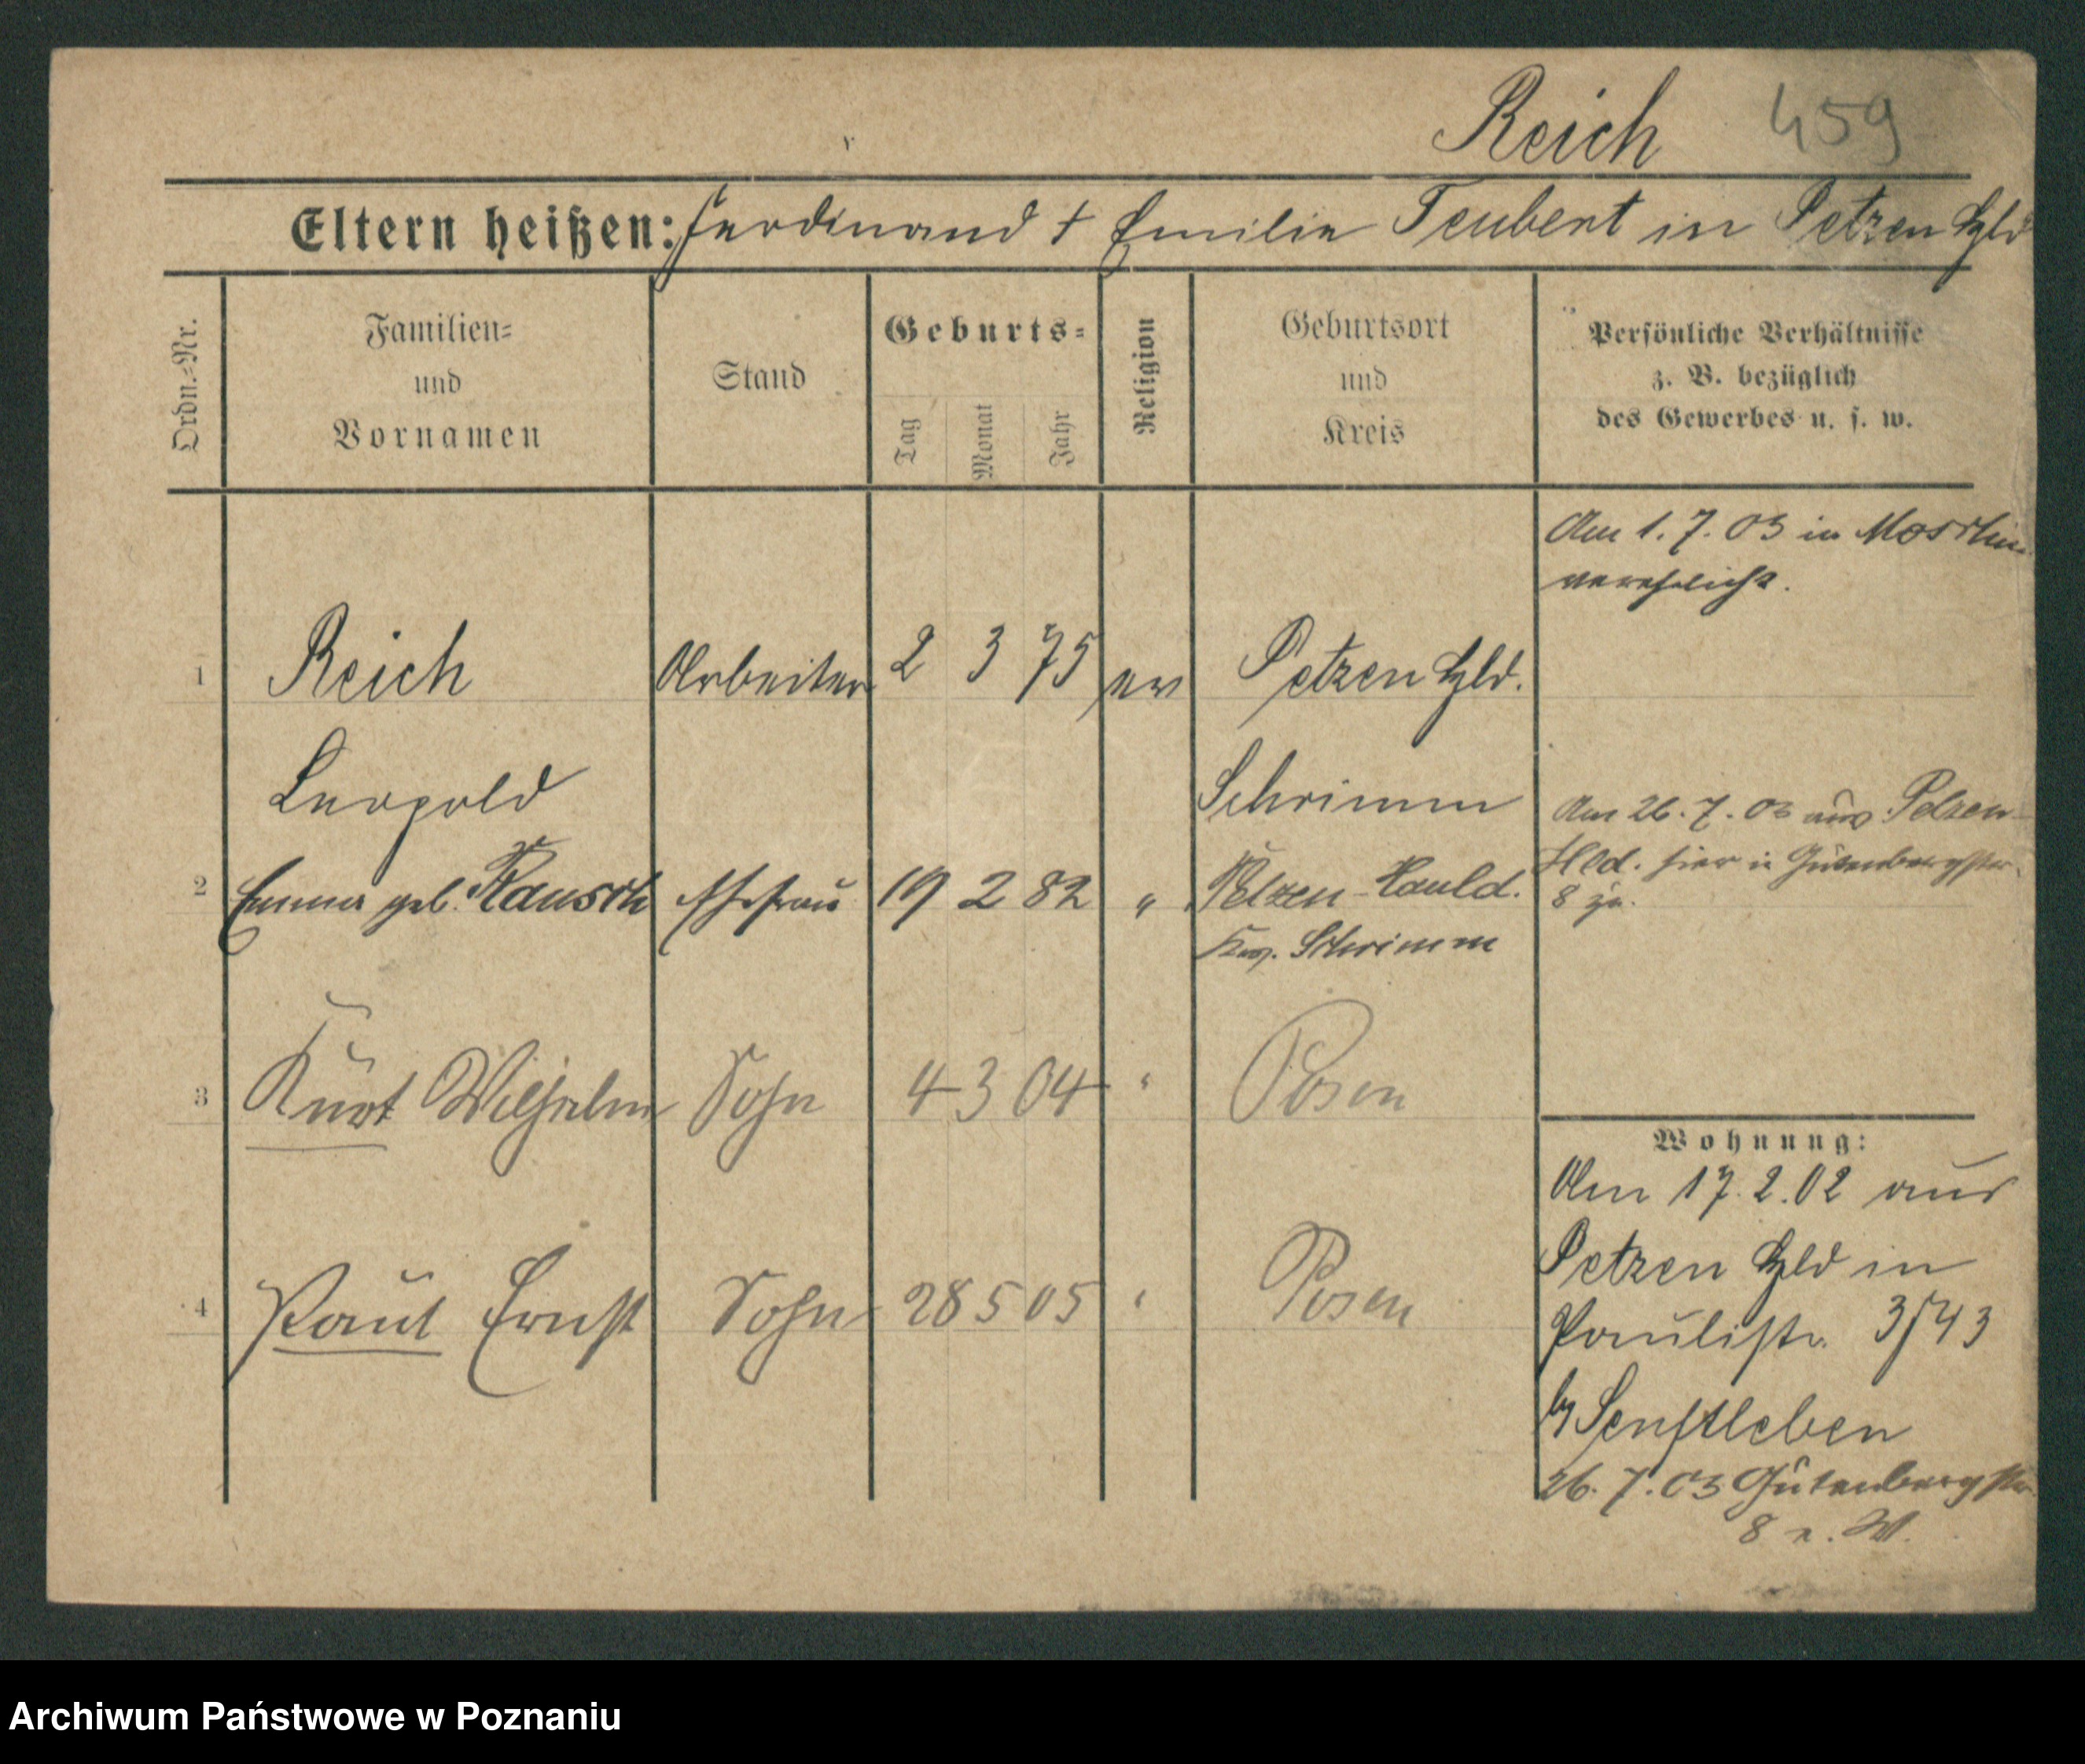 Reich 459
Eltern heißen: Ferdinand † Emilie Teubert in Petzen Hld
Ordn.-Nr.
Familien-
und
Vornamen
Stand
Geburts-
Tag
Monat
Jahr
Religion
Geburtsort
und
Kreis
Persönliche Verhältnisse
z. B. bezüglich
des Gewerbes u. s. w.
Am 1. 7. 03 in
verehelicht.
1 Reich Arbeiter 2 3 75 ev Petzen Hld.
Leopold Schrimm
Am 26. 7. 03 aus Pelzen
2 Emma geb. Rausch Ehefrau 19 2 82 " Pelzen Hauld.
Hld. hier in Gutenbergstr.
8 zu.
Krs. Schrimm
3 Kurt Wilhelm Sohn 4 3 04 " Posen
Wohnung:
Am 17. 2. 02 aus
Petzen Hld in
4 Paul Ernst Sohn 28 5 05 " Posen
Paulistr. 3/43
by Senftleben
26. 7. 03 Gutenbergstr
8 n. W.
Archiwum Państwowe w Poznaniu